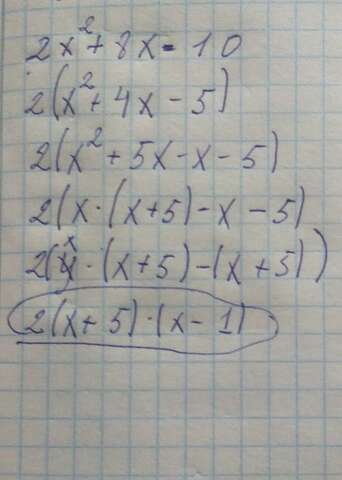 2x² + 8x - 10
2(x² + 4x - 5)
2(x² + 5x - x - 5)
2(x · (x + 5) - x - 5)
2(x · (x + 5) - (x + 5))
2(x + 5) · (x - 1)